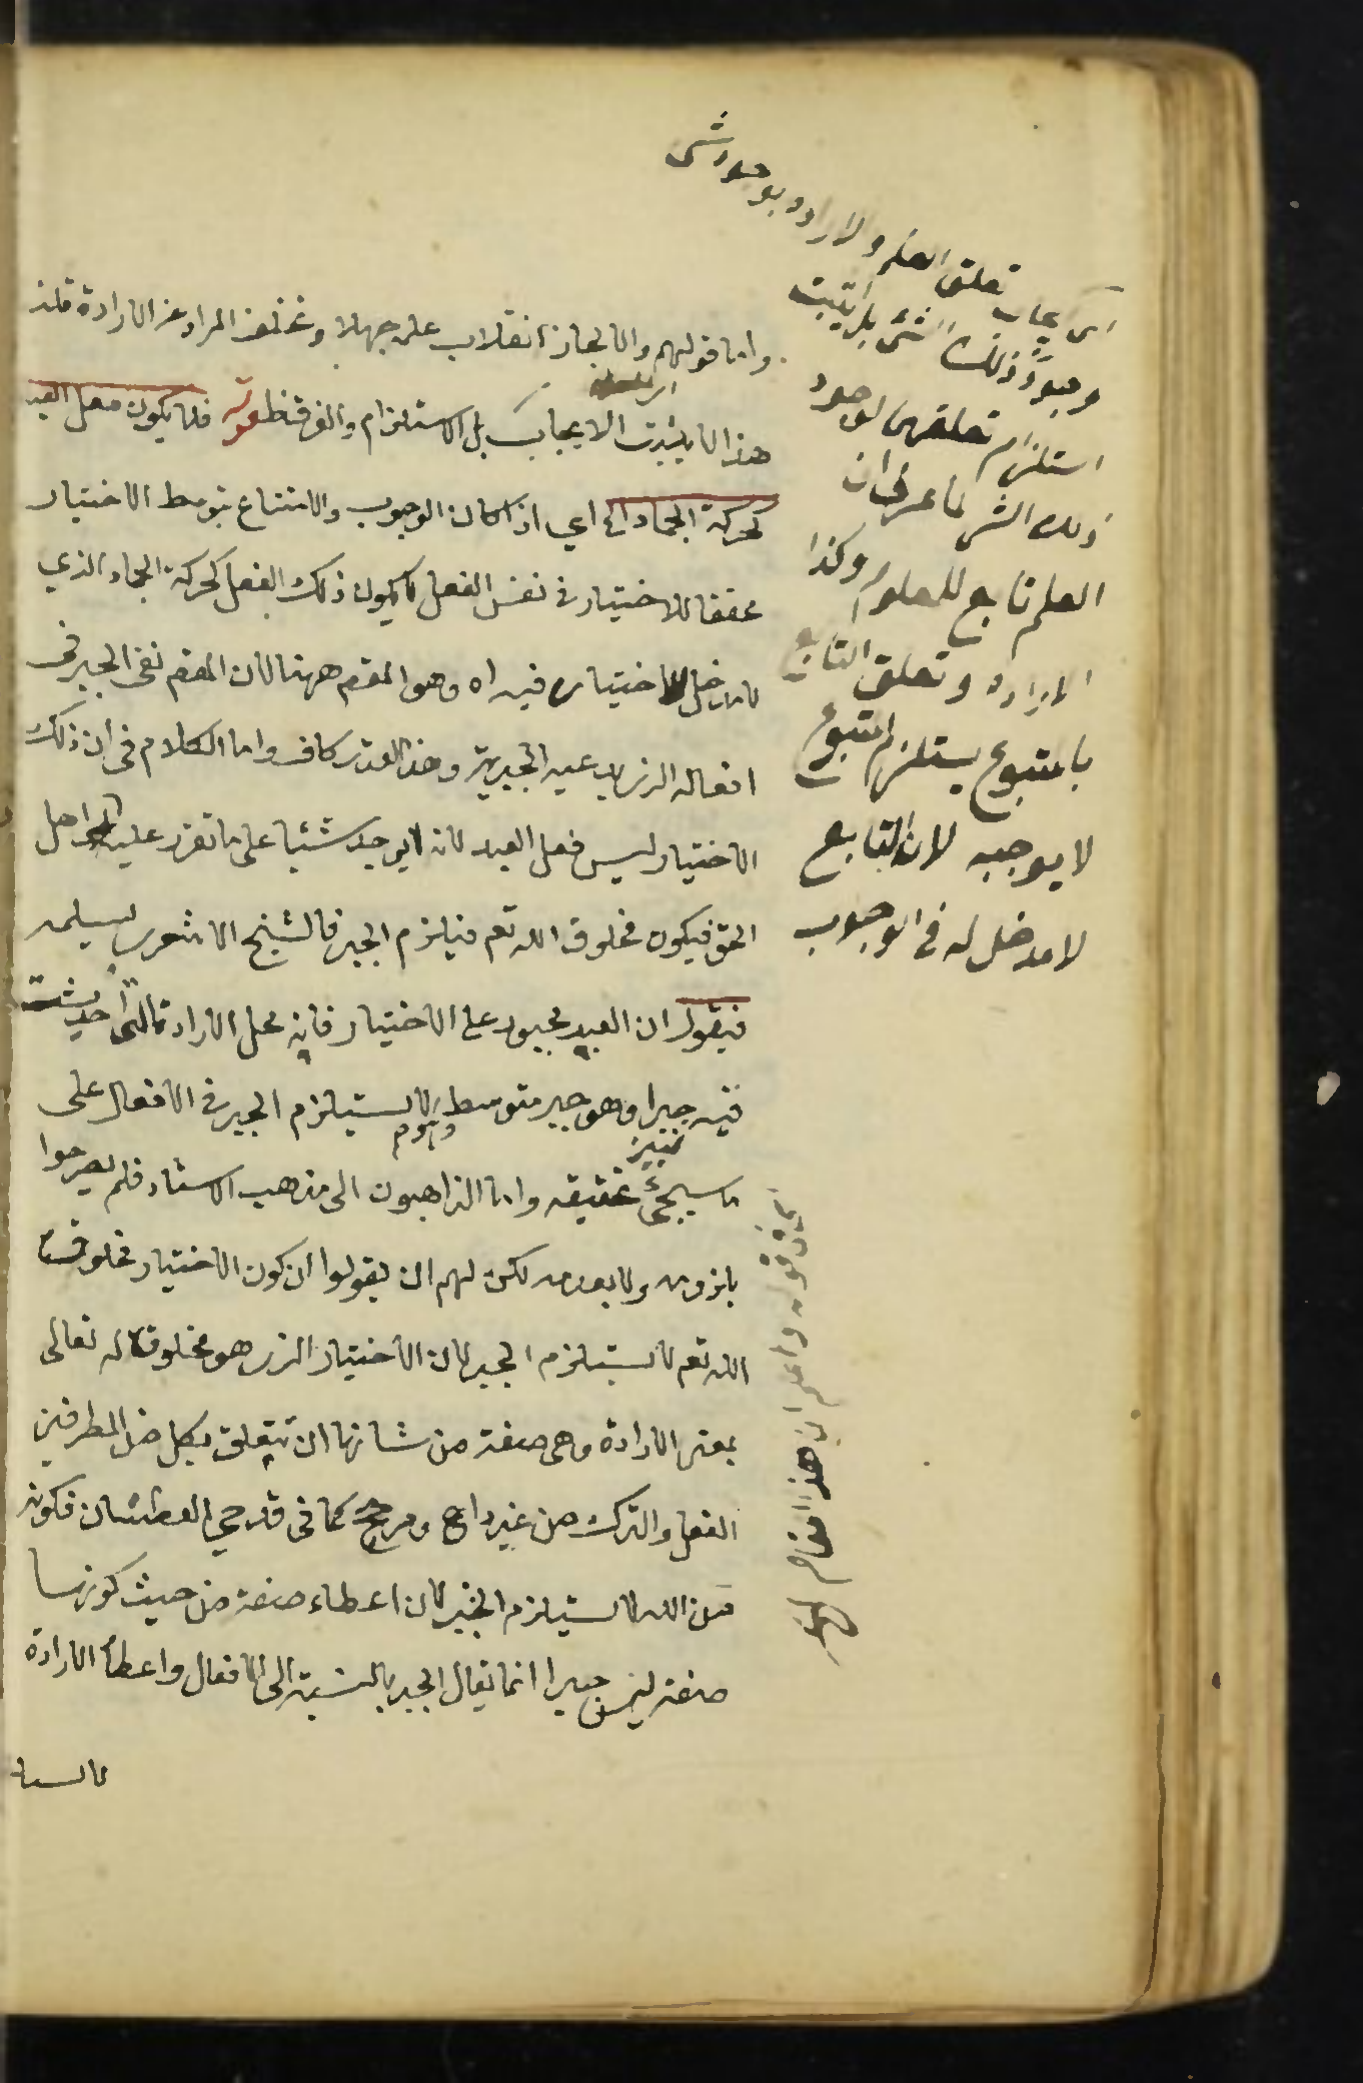 واما قولهم والا لجاز انقلاب علمه جهلا وتخلف المراد عن الارادة قلنا
هذا لا يثبت الايجاب بل الاستلزام والفرق ظ قوله فلا يكون فعل العبد
كحركة الجماد اه اي اذا كان الوجوب والامتناع بتوسط الاختيار
محققا للاختيار في نفس الفعل لا يكون ذلك الفعل كحركة الجماد الذي
لا مدخل للاختيار فيه اه وهو المقصد ههنا لان المقصد نفي الجبر في
افعاله الذي يدعيه الجبرية وهذا القدر كاف واما الكلام في ان ذلك
الاختيار ليس فعل العبد لانه لا يوجد شيئا على ما تقرر عليه اهل
الحق فيكون مخلوق الله تعم فيلزم الجبر فالشيخ الاشعري يسلمه
فيقول ان العبد مجبور على الاختيار فانه محل الارادة التي احدثت
فيه جبرا وهو جبر متوسط لا يستلزم الجبر في الافعال على
ما سيجئ تحقيقه واما الذاهبون الى مذهب الاستاد فلم يصرحوا
بلزومه ولا بعدمه لكن لهم ان يقولوا ان كون الاختيار مخلوقا
لله تعم لا يستلزم الجبر لان الاختيار الذي هو مخلوق له تعالى
بمعنى الارادة وهي صفة من شانها ان تتعلق بكل من الطرفين
الفعل والترك من غير داع ومرجح كما في قدحي العطشان فكونه
من الله لا يستلزم الجبر لان اعطاء صفة من حيث كونها
صفة ليس جبرا انما يقال الجبر بالنسبة الى الافعال واعطاء الارادة
اى ايجاب تعلق العلم والارادة بوجود شى
وجود ذلك الشئ بل يثبت
استلزام تعلقهما لوجود
ذلك الشى لما عرف ان
العلم تابع للمعلوم وكذا
الارادة وتعلق التابع
بالمتبوع يستلزم المتبوع
لا يوجبه لان التابع
لا مدخل له في الوجوب
قوله واعلم ان هذا المقام